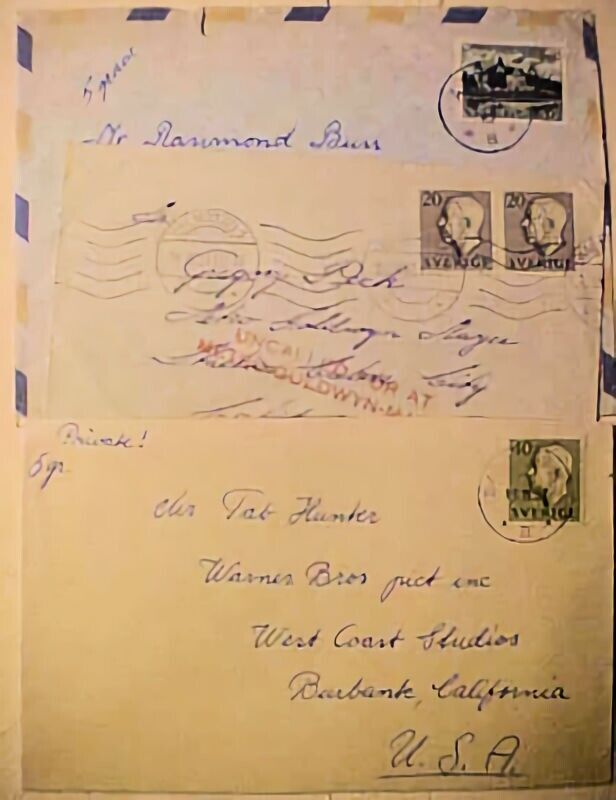 5 gram
Mr Raymond Burr
20 20
SVERIGE SVERIGE
Gregory Peck
Metro Goldwyn Mayer
City
UNCALLED FOR AT
METRO-GOLDWYN-MA
Private!
5 gr.
40
SVERIGE
Mr Tab Hunter
Warner Bros pict inc
West Coast Studios
Burbank, California
U.S.A.